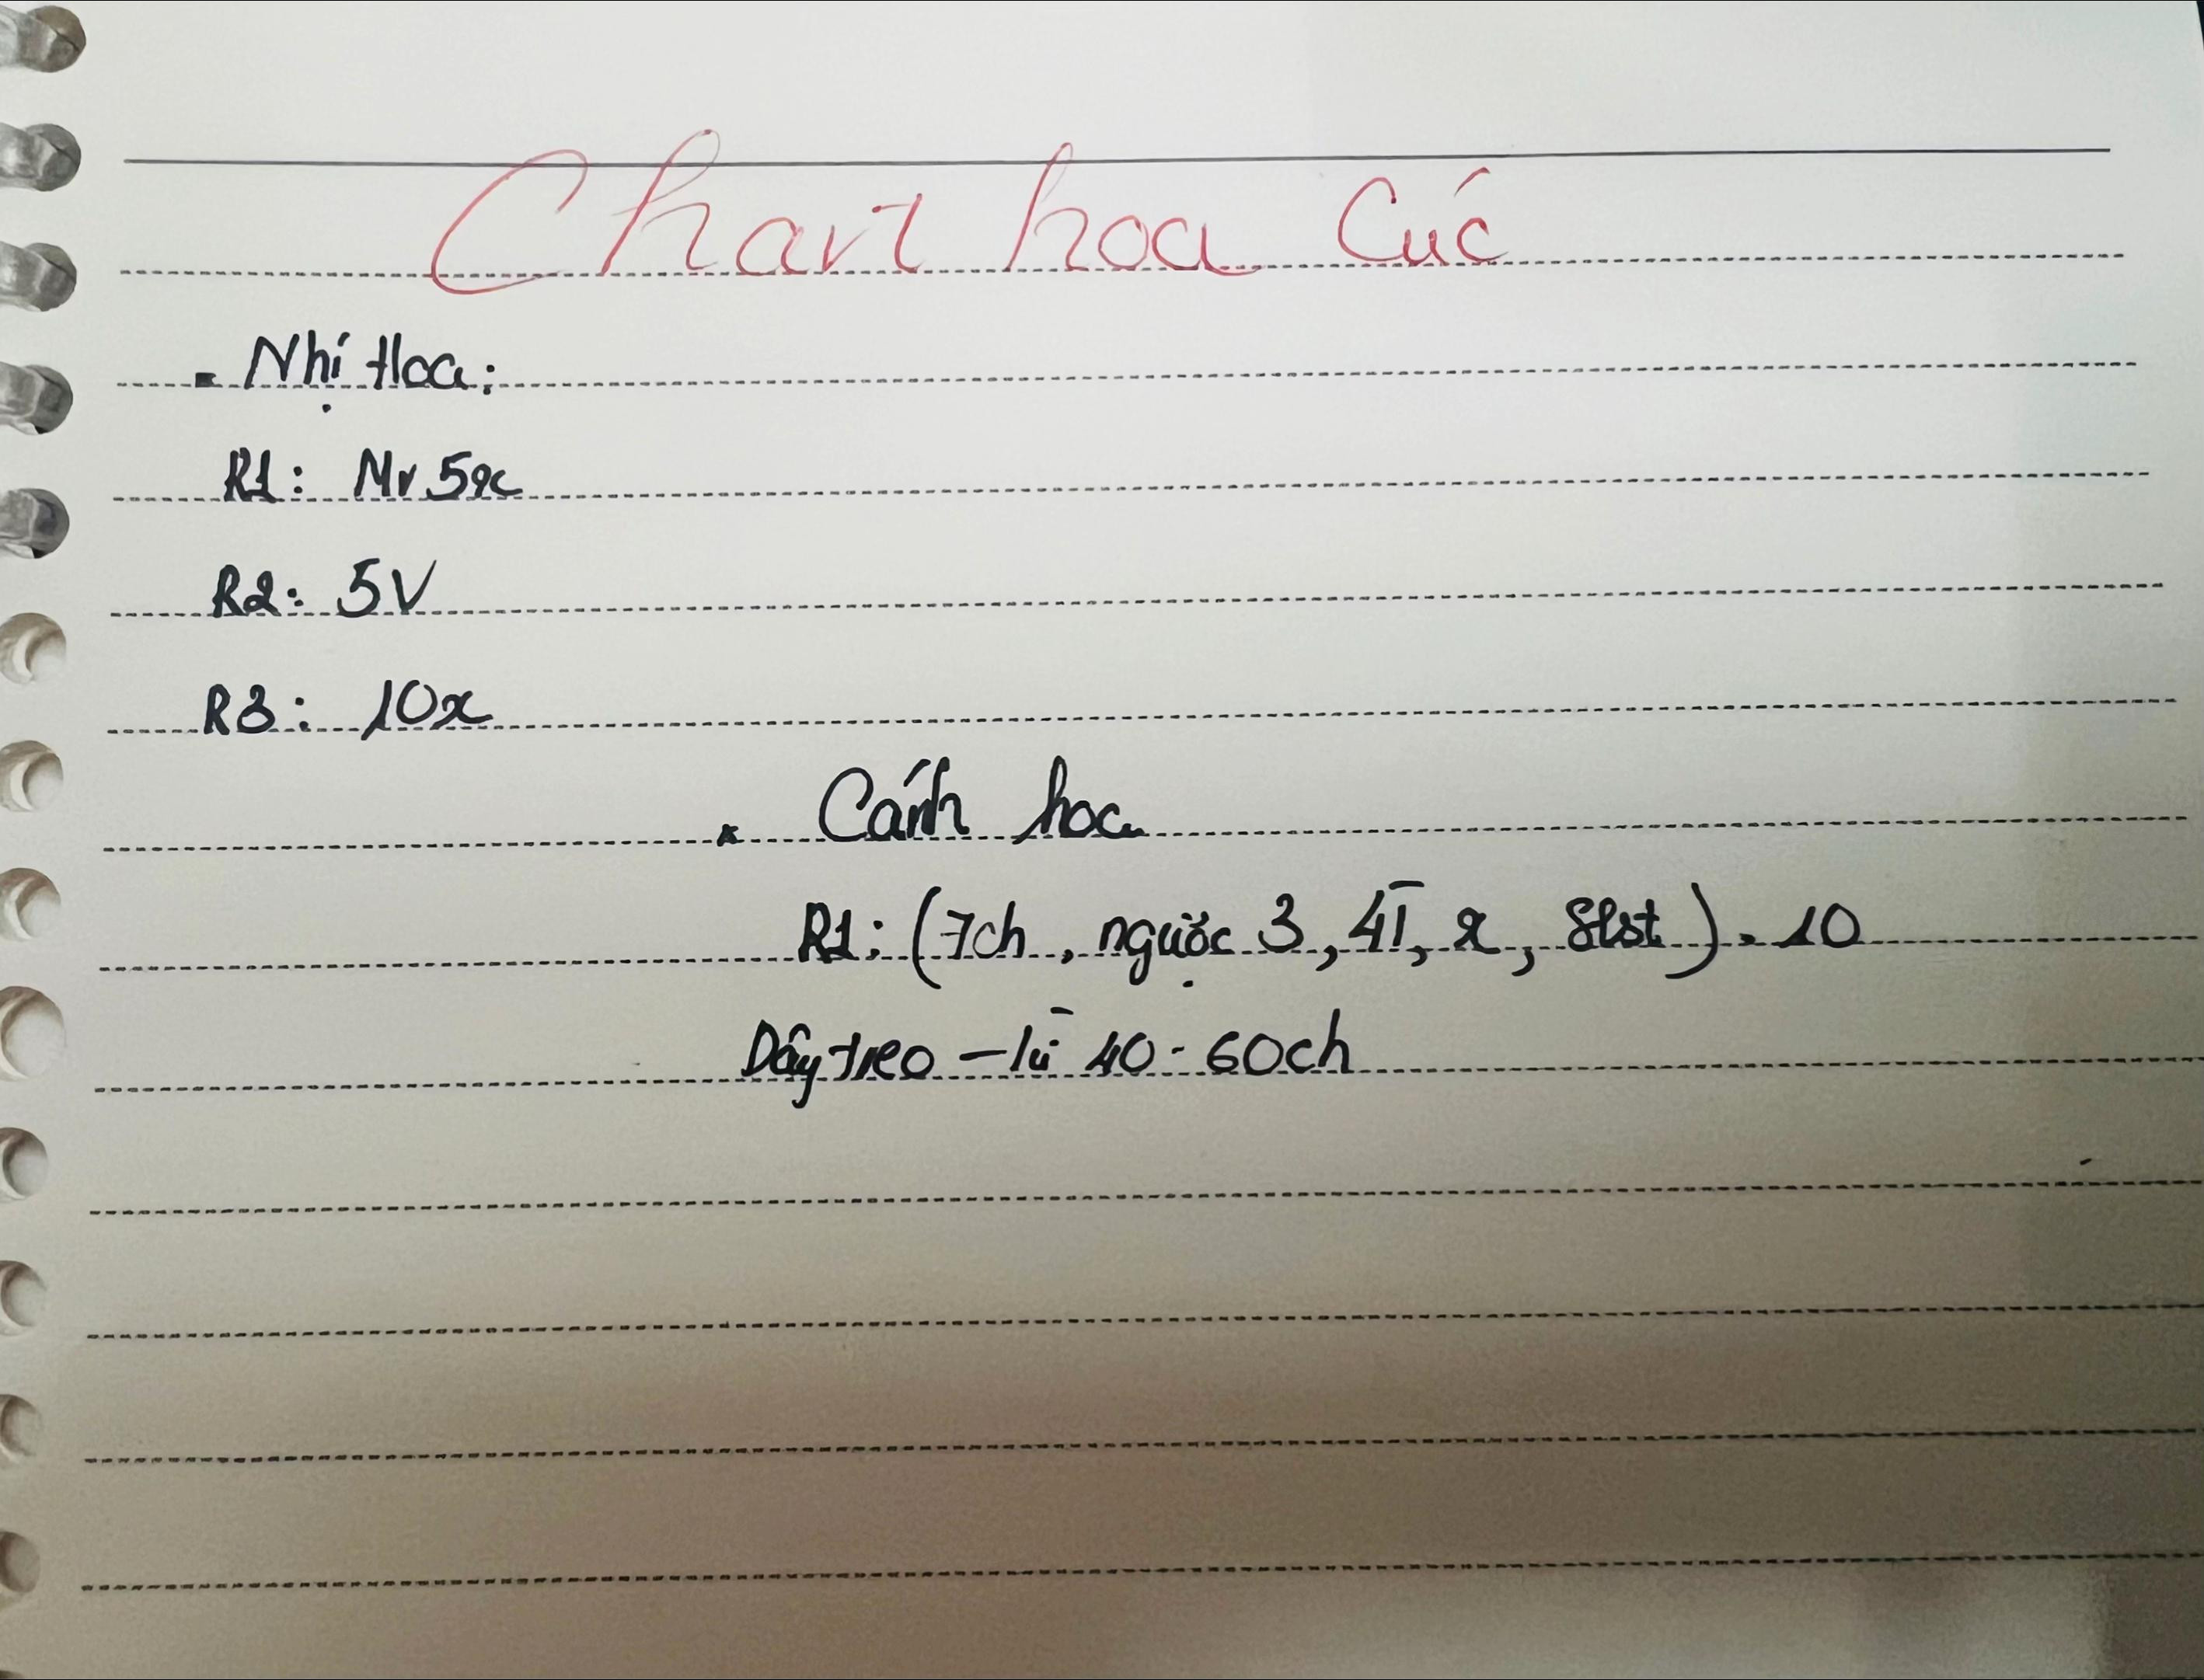 Chart hoa Cúc
- Nhị Hoa:
R1: Mr 5x
R2: 5V
R3: 10x
* Cánh hoa
R1: (7ch, ngược 3, 4T, x, Slst). 10
Dây treo - từ 40 - 60ch